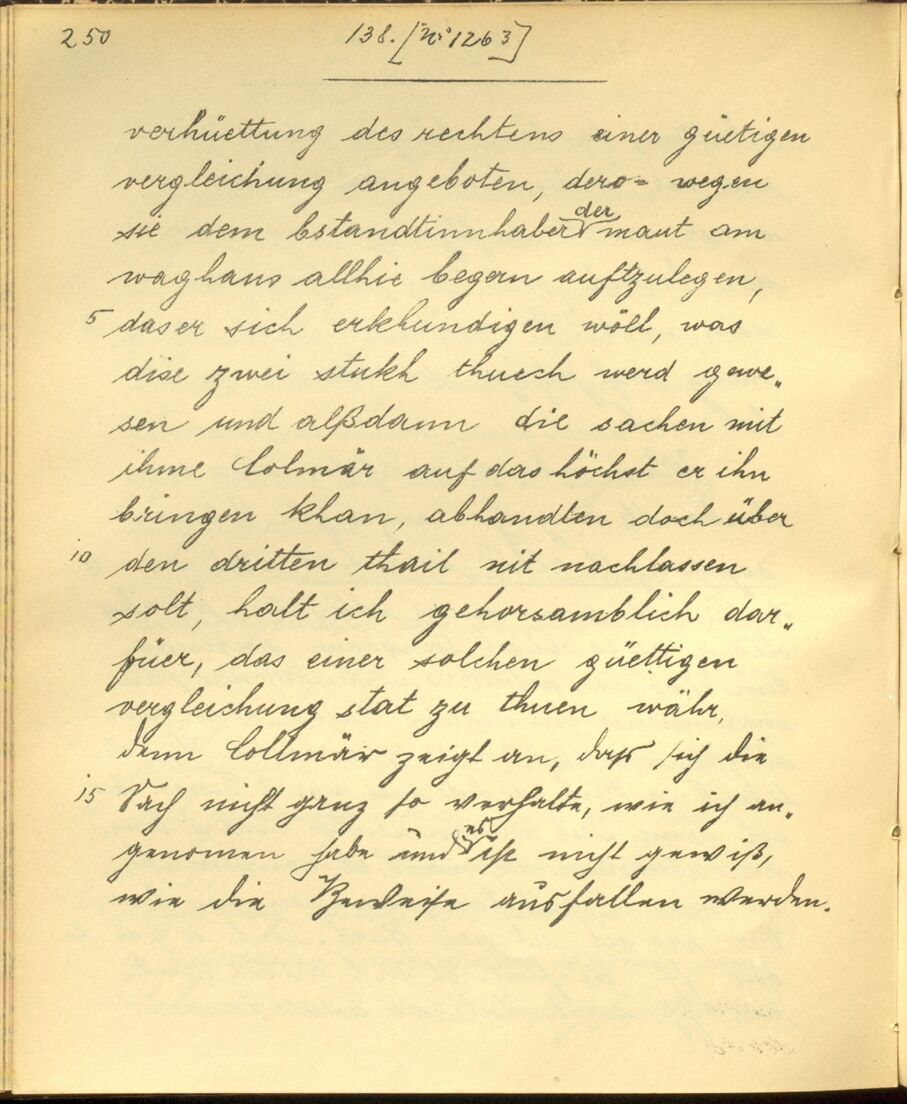 250 138. [N° 1263]
verhüettung des rechtens einer güetigen
vergleichung angeboten, dero= wegen
sie dem bstandtinnhaber der maut am
waghaus allhie begern auftzulegen,
5 das er sich erkhundigen wöll, was
dise zwei stukh thuech werd gewe„
sen und alßdann die sachen mit
ihme Colmär auf das höchst er ihn
bringen khan, abhandten doch über
10 den dritten thail nit nachlassen
solt, halt ich gehorsamblich dar„
füer, das einer solchen güettigen
vergleichung stat zu thuen währ,
denn Collmär zeigt an, dass sich die
15 Sach nicht ganz so verhalte, wie ich an„
genomen habe und es ist nicht gewiß,
wie die Beweise ausfallen werden.